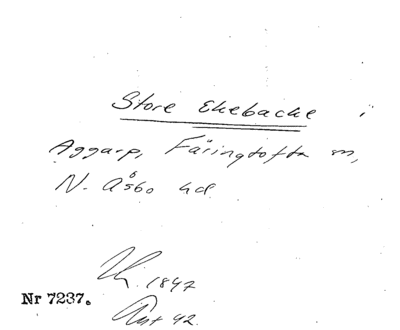 Store Ekebacke i
Aggarp, Färingtofta sn,
N. Åsbo hd
1847
Nr 7237.
42.